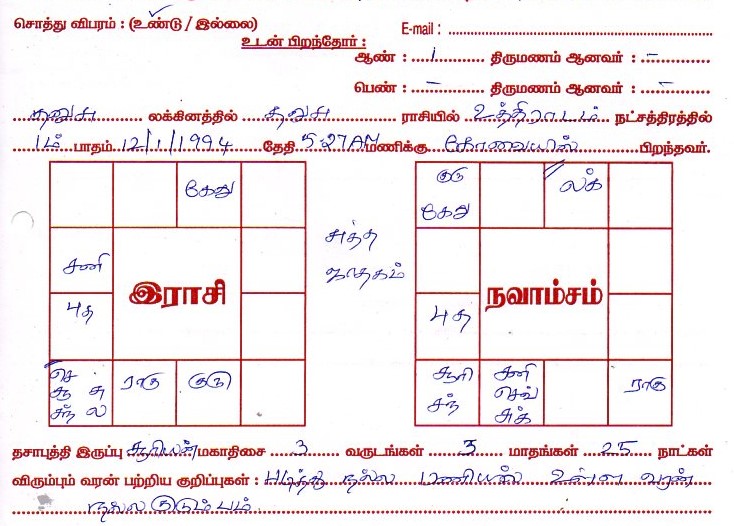 சொத்து விபரம் : (உண்டு / இல்லை)
E-mail :
உடன் பிறந்தோர் :
ஆண் : 1 திருமணம் ஆனவர் : –
பெண் : – திருமணம் ஆனவர் : –
தனுசு லக்கினத்தில் தனுசு ராசியில் உத்திராடம் நட்சத்திரத்தில்
1ம் பாதம் 12/1/1994 தேதி 5.27AM மணிக்கு கோவையில் பிறந்தவர்.
கேது
சனி
புத
இராசி
செ
சூ சு
சந் ல
ராகு
குரு
சுத்த
ஜாதகம்
குரு
கேது
லக்
புத
நவாம்சம்
சூரி
சந்
சனி
செவ்
சுக்
ராகு
தசாபுத்தி இருப்பு சூரியன் மகாதிசை 3 வருடங்கள் 3 மாதங்கள் 25 நாட்கள்
விரும்பும் வரன் பற்றிய குறிப்புகள் : படித்து நல்ல பணியில் உள்ள வரன்
நல்ல குடும்பம்